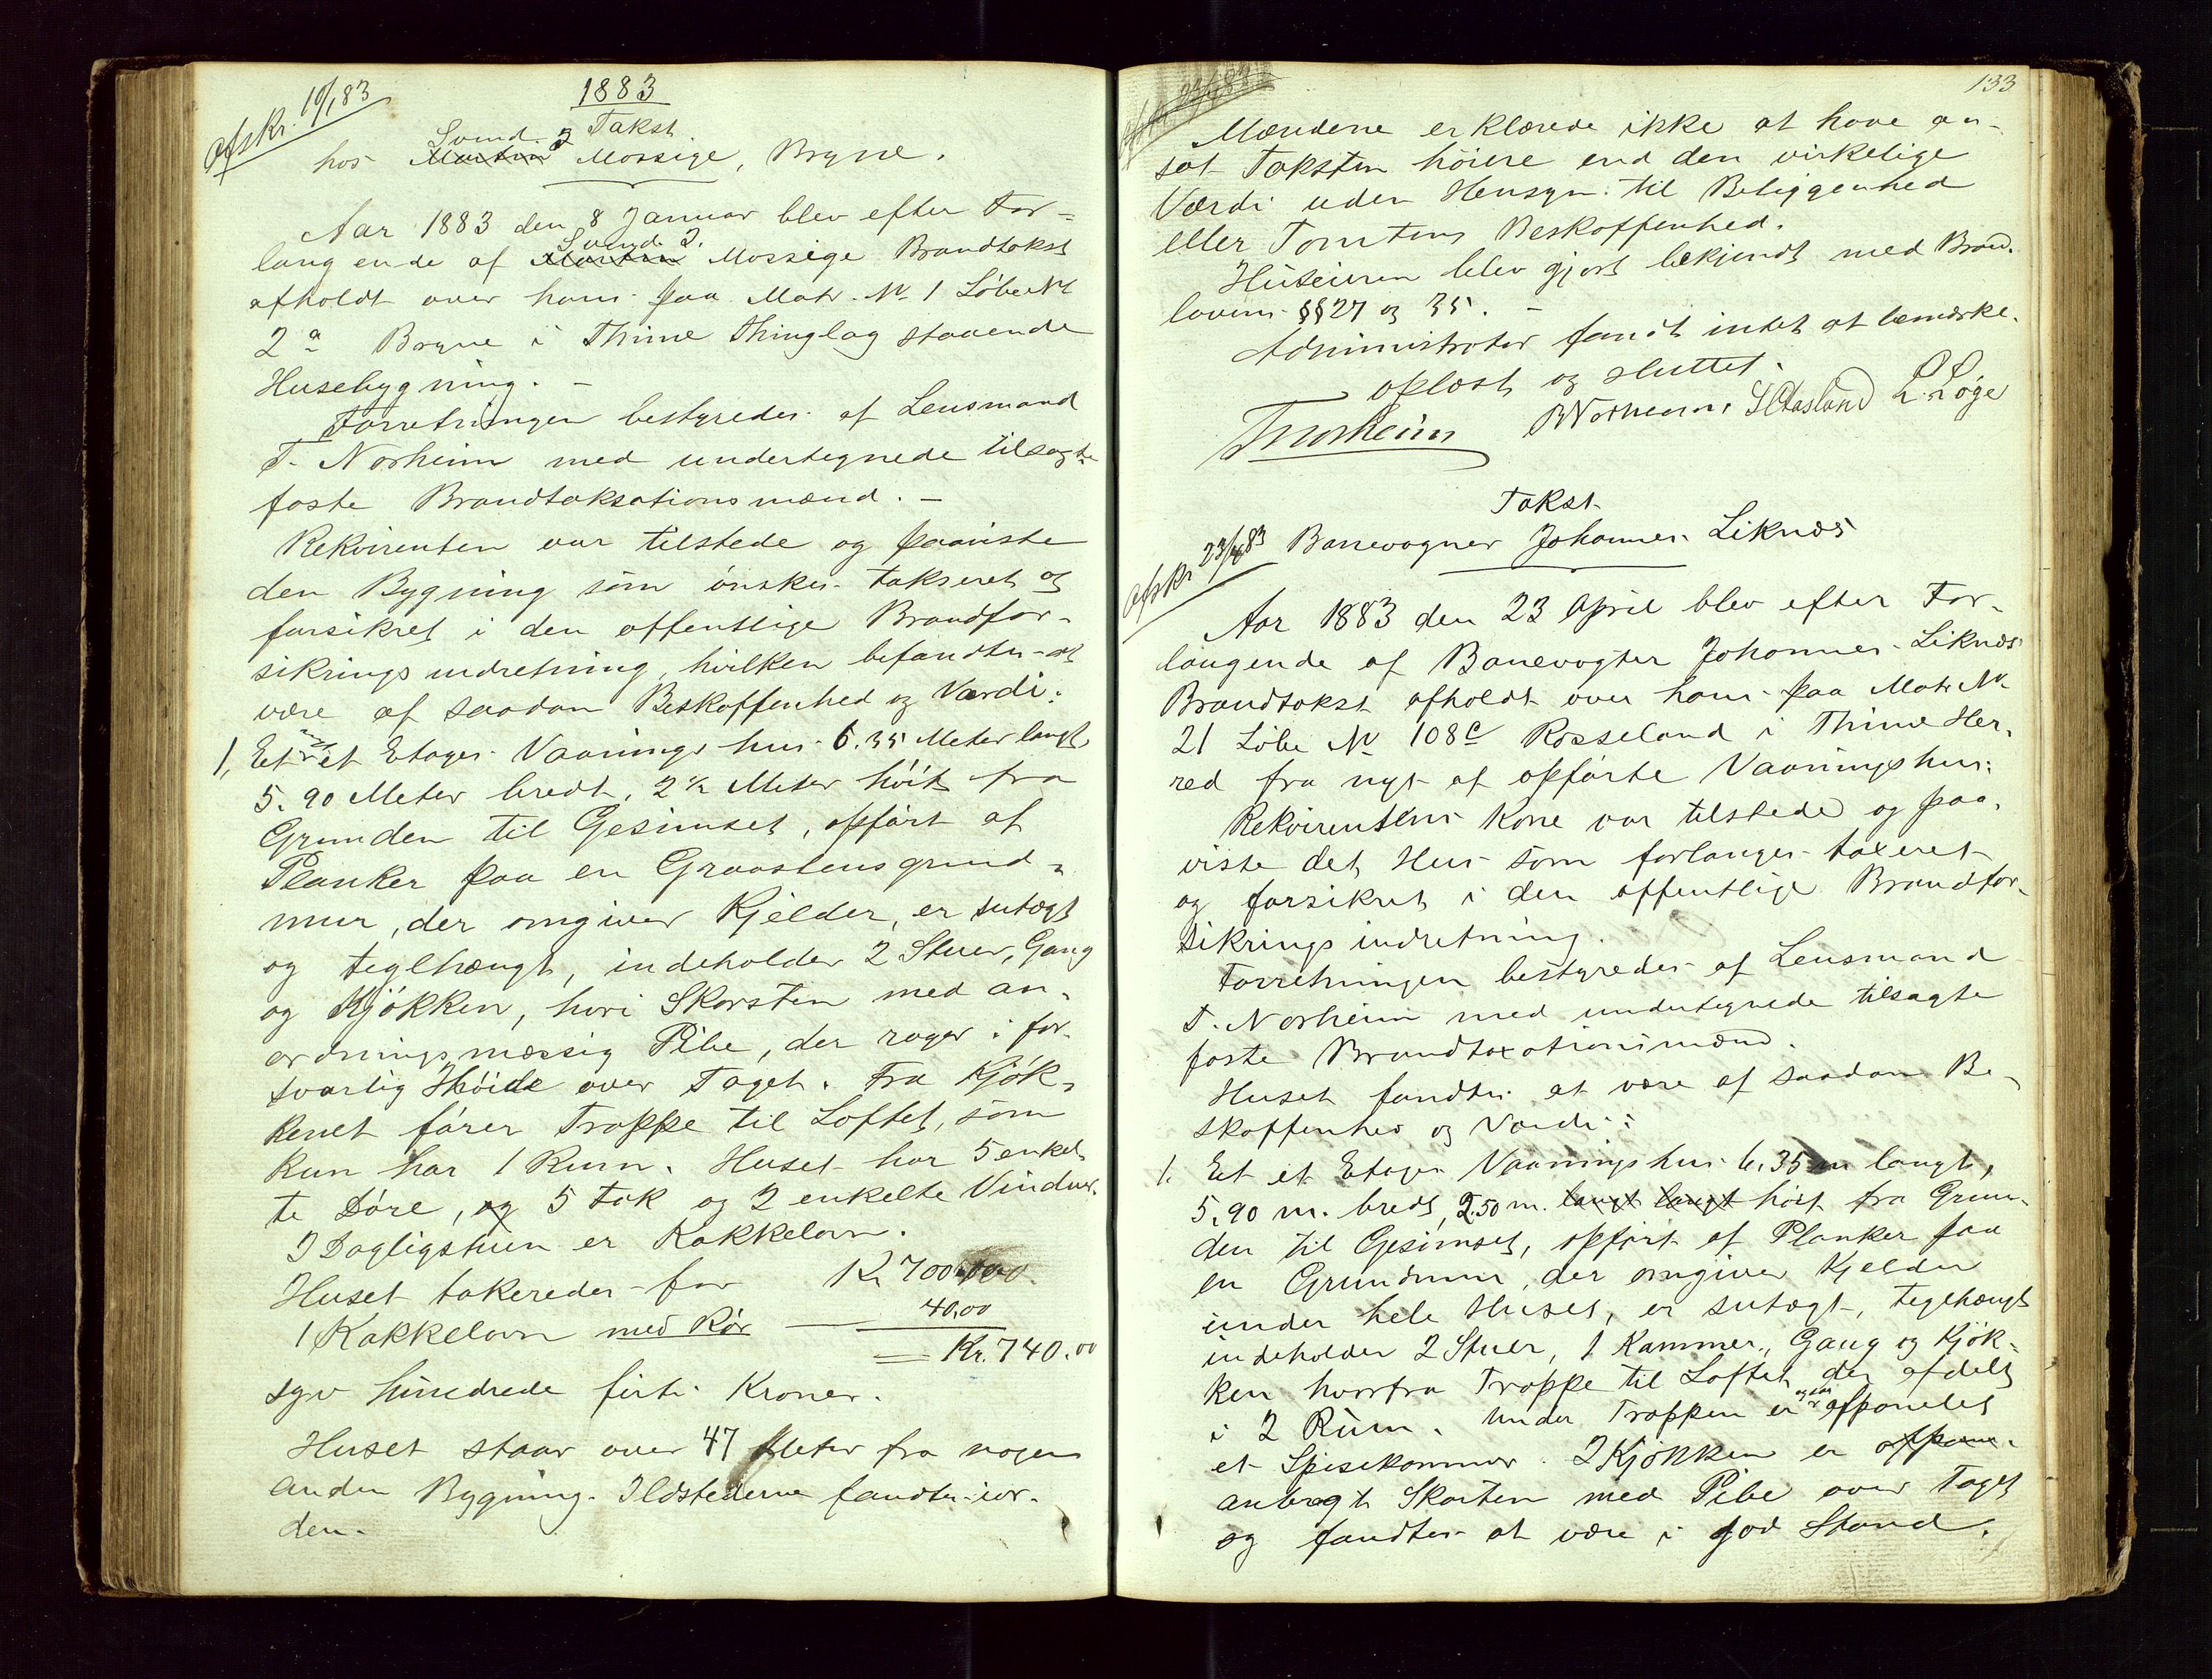 1883
afskr. 10/1 83
Takst
Svend J
hos Martin Mossige, Bryne.
Aar 1883 den 8 Januar blev efter For-
Svend J.
langende af Martin Mossige Brandtakst
afholdt over hans paa Matr. № 1 Løbe №
2a Bryne i Thime Thinglag staaende
Husebygning. –
Forretningen bestyredes af Lensmand
T. Norheim med undertegnede tilsagte
faste Brandtaksationsmænd. –
Rekvirenten var tilstede og paaviste
den Bygning som ønskes takseret og
forsikret i den offentlige Brandfor-
sikringsindretning, hvilken befandtes at
være af saadan Beskaffenhed og Værdi:
1, Et et Etages Vaaningshus 6.35 Meter langt
5.90 Meter bredt, 2½ Meter høit fra
Grunden til Gesimset, opført af
Planker paa en Graastensgrund-
mur, der omgiver Kjelder, er sutagt
og teglhængt, indeholder 2 Stuer, Gang
og Kjøkken, hvori Skorsten med an-
ordningsmæssig Pibe, der rager i for-
svarlig Høide over Taget. Fra Kjøk-
kenet fører Trappe til Loftet, som
kun har 1 Rum. Huset har 5 enkel-
te Døre, og 5 Fak og 2 enkelte Vinduer.
I Dagligstuen er Kakkelovn.
Huset takseredes for Kr 700.00
1 Kakkelovn med Rør — 40.00
= Kr. 740.00
syv hundrede firti Kroner.
Huset staar over 47 Meter fra nogen
anden Bygning. Ildstederne fandtes i or-
den.
133
Mændene erklærede ikke at have an-
sat Taksten høiere end den virkelige
Værdi uden Hensyn til Beliggenhed
eller Tomtens Beskaffenhed.
Huseieren blev gjort bekjendt med Brand-
lovens §§ 27 og 35. –
Administrator fandt intet at bemærke.
Oplæst og sluttet.
TNorheim BNorheim, S Aasland L. Løge
Takst
afskr 23/4 83 Banevogner Johannes Liknæs
Aar 1883 den 23 April blev efter For-
langende af Banevogter Johannes Liknæs
Brandtakst afholdt over hans paa Matr №
21 Løbe № 108c Rosseland i Thime Her-
red fra nyt af opførte Vaaningshus:
Rekvirentens Kone var tilstede og paa-
viste det Hus som forlanges taxeret
og forsikret i den offentlige Brandfor-
sikringsindretning.
Forretningen bestyredes af Lensmand
T. Norheim med undertegnede tilsagte
faste Brandtaxationsmænd.
Huset fandtes at være af saadan Be-
skaffenhed og Værdi:
1. Et et Etages Vaaningshus 6.35 m langt,
5.90 m. bredt, 2.50 m. langt langt høit fra Grun-
den til Gesimset, opført af Planker paa
en Grundmur, der omgiver Kjelder
under hele Huset, er sutagt, teglhængt
indeholder 2 Stuer, 1 Kammer, Gang og Kjøk-
ken hvorfra Trappe til Loftet der afdelt
i 2 Rum. Under Trappen er ogsaa afpanelet
et Spisekammer. I Kjøkken er afpane-
anbragt Skorsten med Pibe over Taget
og fandtes at være i god Stand.